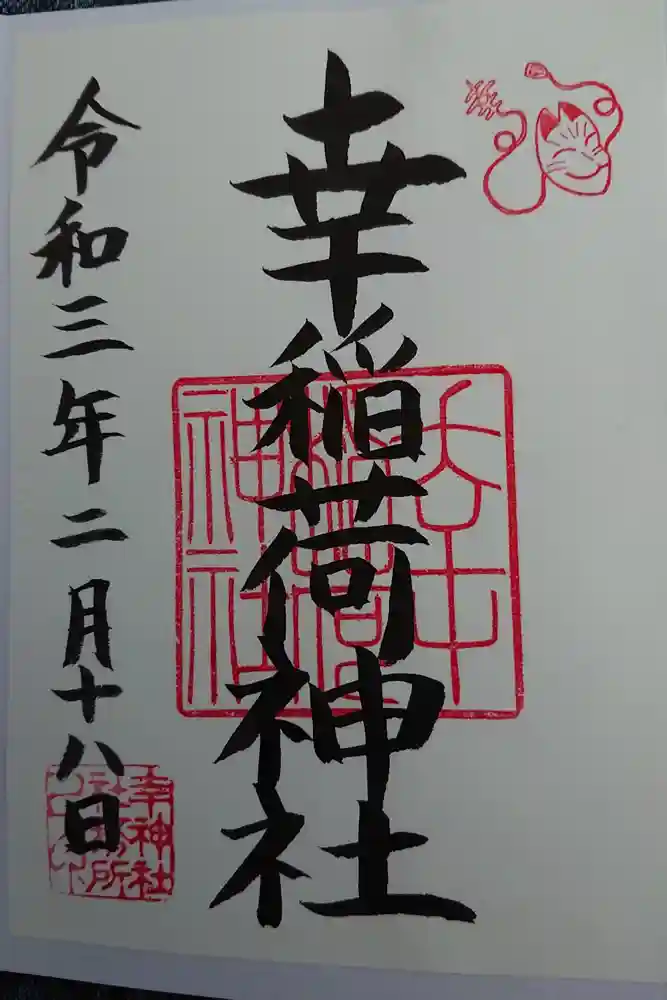 幸稲荷神社
令和三年二月十八日
幸稲荷神社